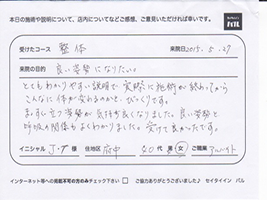 本日の施術や説明について、店内についてなどご感想、ご意見いただければ幸いです。
受けたコース 整体 来院日 2015.5.29
来院の目的 良い姿勢になりたい。
とてもわかりやすい説明で実際に施術が終わってから
こんなに体が変わるのかと、びっくりです。
まっすぐ立つ姿勢が気持ち良くなりました。良い姿勢と
呼吸の関係もよくわかりました。受けて良かったです。
イニシャル J・T 様 住地区 府中 40代 男・女 ご職業 アルバイト
インターネット等への掲載不可の方のみチェック下さい ご協力ありがとうございました♪ セイタイイン パル